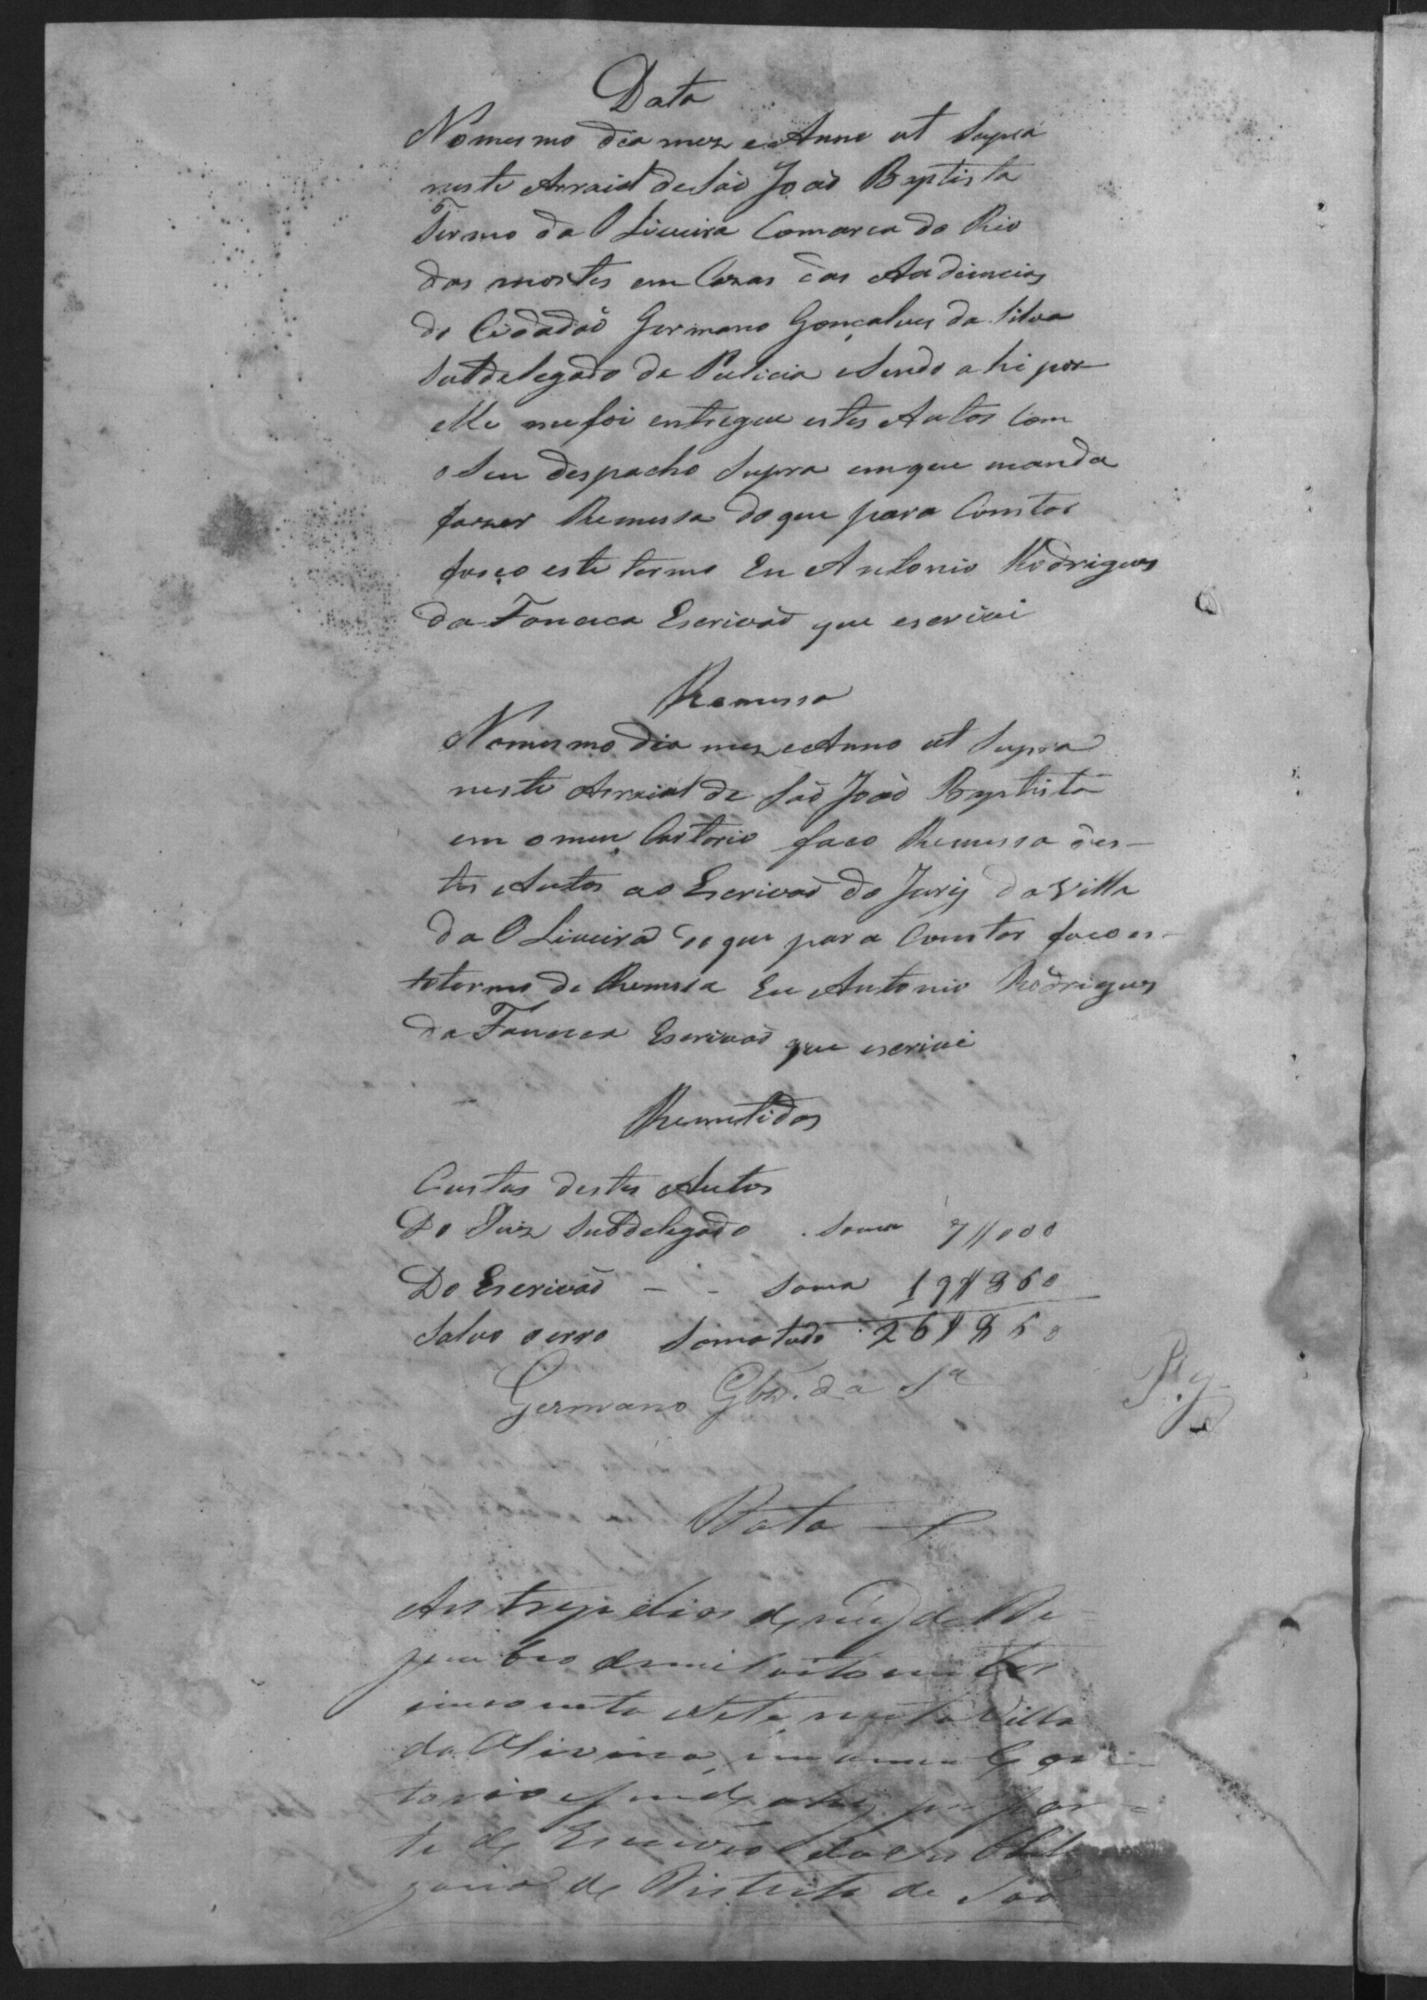 Data
Nomesmo dia mez e Anno ut Supra
neste Arraial de São João Baptista
Termo da OLiveira Comarca do Rio
das mortes em Cazas das Audiencias
do Cidadão Germano Gonçalves da Silva
Subdelegado de Pulicia e Sendo ahi por
elle me foi entregue estes Autos Com
o Seu despacho Supra em que manda
fazer Remessa do que para Constar
faço este termo Eu Antonio Rodrigues
da Fonceca Escrivão que escrivi
Remessa
Nomesmo dia mez e Anno ut Supra
neste Arraial de São João Baptista
em o meu Cartorio faco Remessa des-
tes Autos ao Escrivão do Jury da Villa
da OLiveira do que para Constar faco es-
te termo de Remesa Eu Antonio Rodrigues
da Fonceca Escrivão que escrivi
Remetidos
Custas destes Autos
Do Juiz Subdelegado . Soma 7$000
Do Escrivão - - Soma 19$860
Salvo o erro Soma tudo 26$860
Germano Glz. da Sa
Data
Aos tres dias do mez de De
zembro de mil oito centos
cincoenta e sete, nesta Villa
da Oliveira, em meu Car-
torio e sendo ahi por par-
te do Escrivão da Sub Dele
gacia do Districto de São